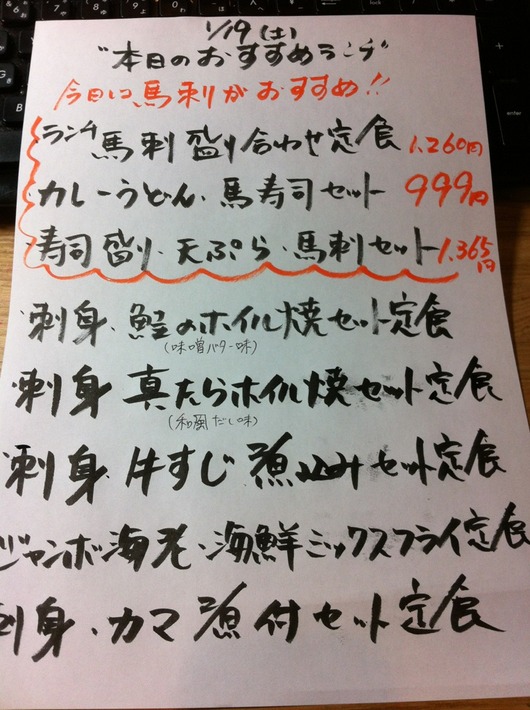 1/19(土)
"本日のおすすめランチ"
今日は馬刺がおすすめ!!
ランチ馬刺盛り合わせ定食 1,260円
カレーうどん・馬寿司セット 999円
寿司盛り・天ぷら・馬刺セット 1,365円
刺身・鮭のホイル焼セット定食
(味噌バター味)
刺身・真たらホイル焼セット定食
(和風だし味)
刺身・牛すじ煮込みセット定食
ジャンボ海老・海鮮ミックスフライ定食
刺身・カマ煮付セット定食